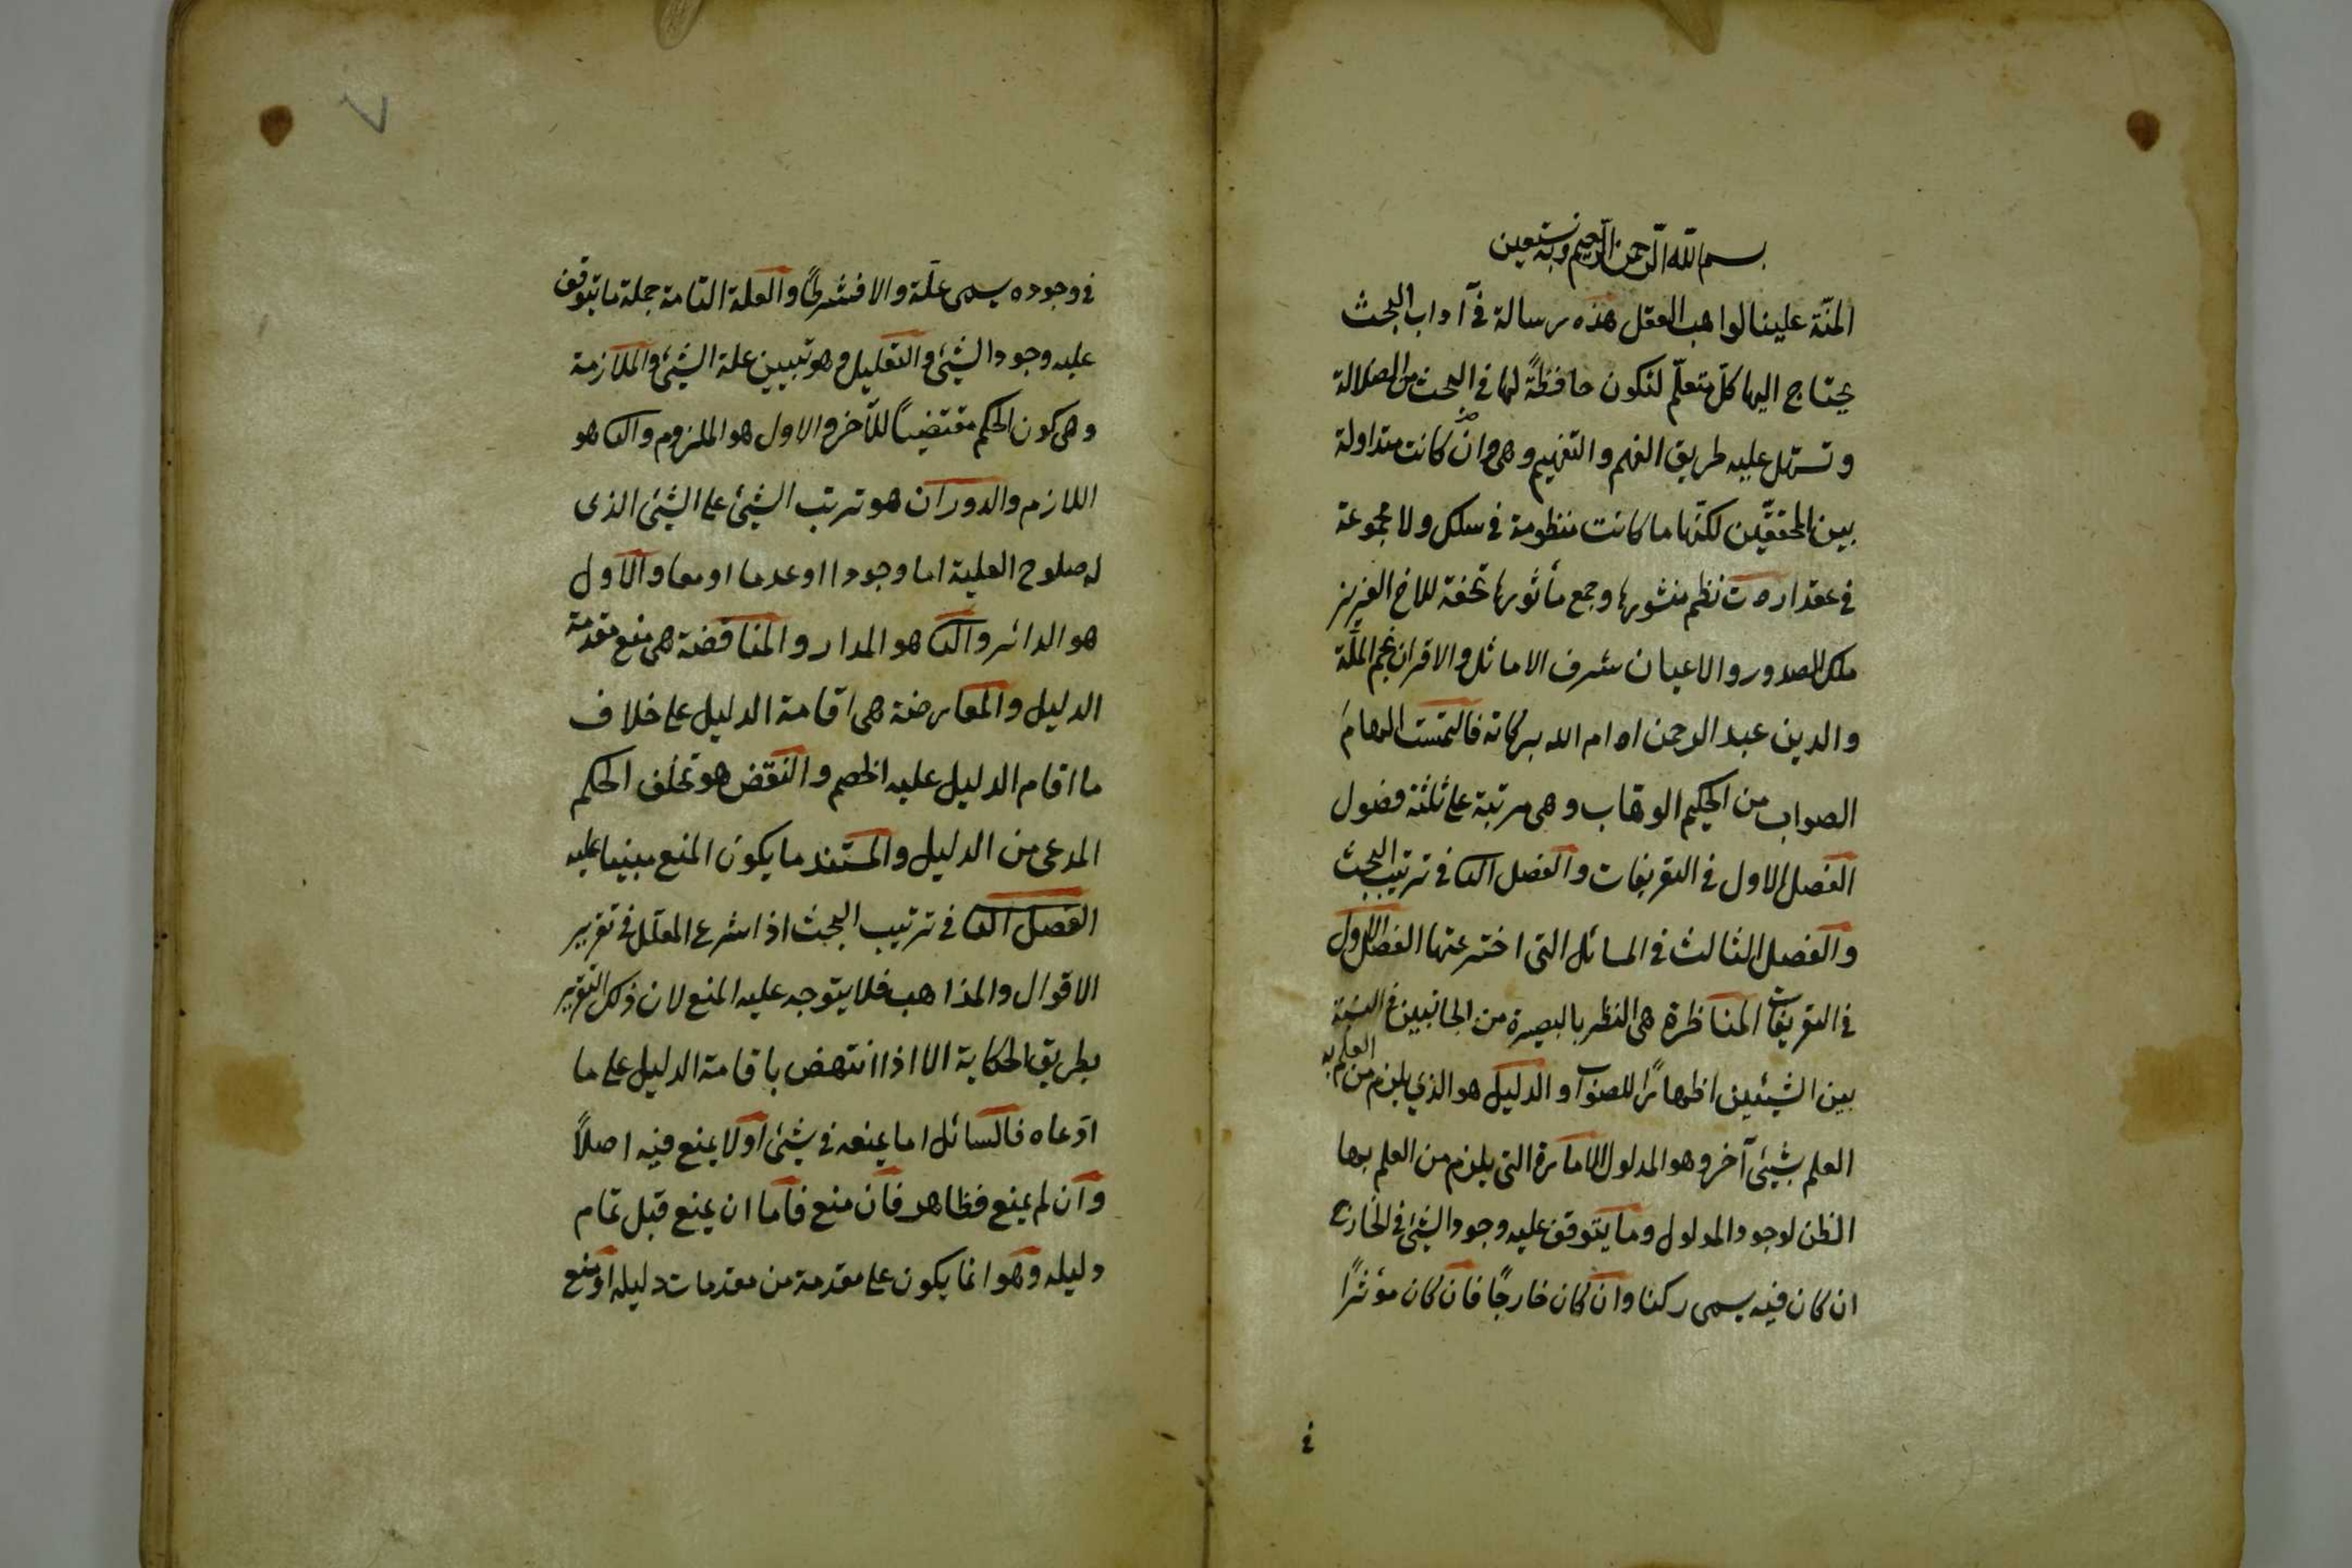 بسم الله الرحمن الرحيم وبه نستعين
المنّة علينا لواهب العقل هذه رسالة في آداب البحث
يحتاج اليها كلّ متعلّم لتكون حافظةً لها في البحث من الضلالة
وتسهل عليه طريق الفهم والتفهيم وهي وان كانت متداولة
بين المحققين لكنّها ما كانت منظومة في سلك ولا مجموعة
في عقد اردت نظم منثورها وجمع مأثورها تحفة للاخ العزيز
ملك الصدور والاعيان شرف الاماثل والاقران نجم الملّة
والدين عبد الرحمن ادام الله بركاته فالتمست الهام
الصواب من الحكيم الوهّاب وهي مرتبة على ثلثة فصول
الفصل الاول في التعريفات والفصل الثا في ترتيب البحث
والفصل الثالث في المسائل التى اخترعتها الفصل الاول
في التعريفات المناظرة هي النظر بالبصيرة من الجانبين في النسبة
بين الشيئين اظهارًا للصواب والدليل هو الذي يلزم من العلم به
العلم بشيئ آخر وهو المدلول الامارة التى يلزم من العلم بها
الظن لوجود المدلول وما يتوقف عليه وجود الشيئ في الخارج
ان كان فيه يسمى ركنا وان كان خارجًا فان كان مؤثرًا
في
٧
في وجوده يسمى علّة والا فشرطًا والعلة التامة جملة ما يتوقف
عليه وجود الشيئ والتعليل وهو تبيين علة الشيئ والملازمة
وهي كون الحكم مقتضيًا للآخر والاول هو الملزوم والثا هو
اللازم والدوران هو ترتب الشيئ على الشيئ الذى
له صلوح العلية اما وجودا او عدما او معا والاول
هو الدائر والثا هو المدار والمناقضة هي منع مقدمة
الدليل والمعارضة هي اقامة الدليل على خلاف
ما اقام الدليل عليه الخصم والنقض هو تخلف الحكم
المدعى من الدليل والمستند ما يكون المنع مبنيا عليه
الفصل الثا في ترتيب البحث اذا شرع المعلل في تقرير
الاقوال والمذاهب فلا يتوجه عليه المنع لان ذلك التقرير
بطريق الحكاية الا اذا انتهض باقامة الدليل على ما
ادّعاه فالسائل اما يمنعه في شيئ اولا يمنع فيه اصلًا
وان لم يمنع فظاهر فان منع فاما ان يمنع قبل تمام
دليله وهو انما يكون على مقدمة من مقدمات دليله او منع